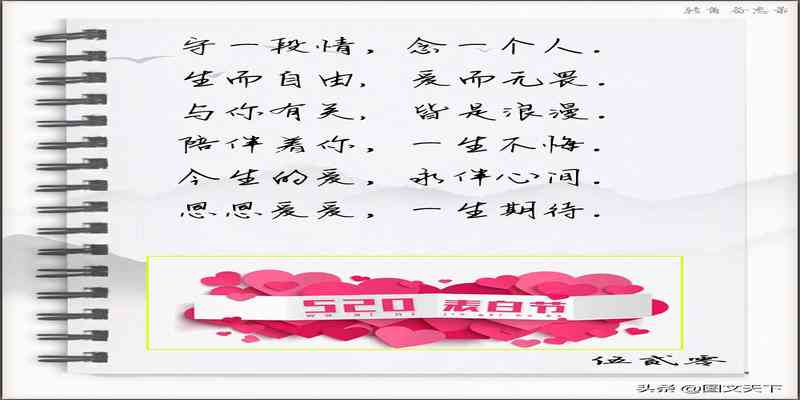 转角备忘录
守一段情，念一个人。
生而自由，爱而无畏。
与你有关，皆是浪漫。
陪伴着你，一生不悔。
今生的爱，永伴心间。
恩恩爱爱，一生期待。
520 表白节
伍贰零
头条 @图文天下